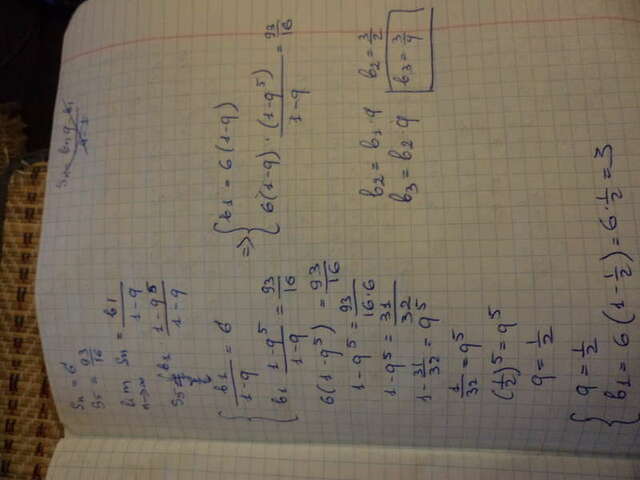 Sₙ = 6
S₅ = 93/16
lim Sₙ = b₁/(1-q)
n→∞
b₁ (1-q⁵)/(1-q)
{ b₁/(1-q) = 6
b₁ (1-q⁵)/(1-q) = 93/16
=> { b₁ = 6(1-q)
6(1-q)·(1-q⁵)/(1-q) = 93/16
6(1-q⁵) = 93/16
1-q⁵ = 93/(16·6)
1-q⁵ = 31/32
1-31/32 = q⁵
1/32 = q⁵
(1/2)⁵ = q⁵
q = 1/2
b₂ = b₁·q b₂ = 3/2
b₃ = b₂·q b₃ = 3/4
{ q = 1/2
b₁ = 6(1-1/2) = 6·1/2 = 3